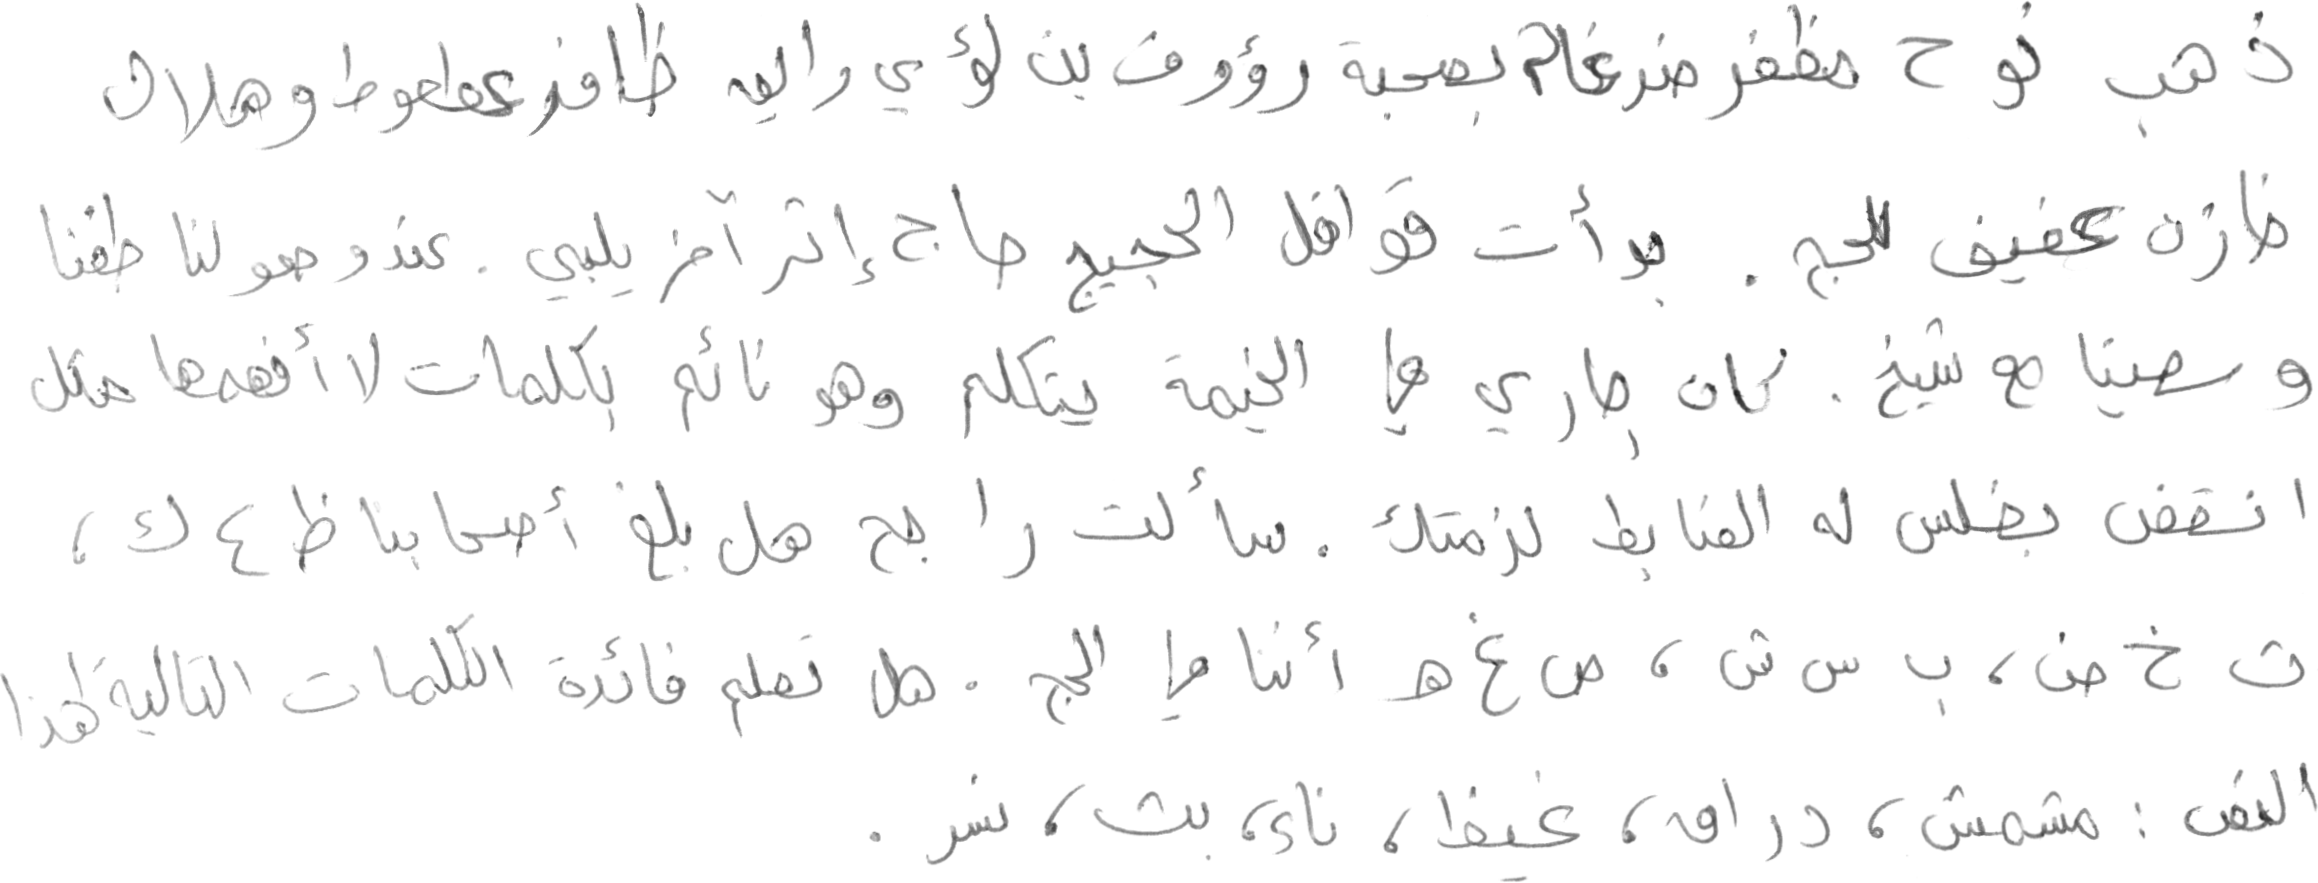 ذهب نوح مظفر ضرغام بصحبة رؤوف بن لؤي رايق ظافر عطعوط وهلال
خازن عفيف للحج . بدأت قوافل الحجيج حاج إثر آخر يلبي . عند وصولنا طفنا
وسعينا مع شيخ . كان جاري في الخيمة يتكلم وهو نائم بكلمات لا أفهمها مثل
انتفض بضلس له الضابط لزمتك . سألت راجح هل بلغ أصحابنا ظ ع ك ،
ث خ ض ، ب س ش ، ص غ ه أثنا في الحج . هل تعلم فائدة الكلمات التالية لهذا
النص : مشمش ، دراق ، غيظ ، ناء ، بث ، نسر .